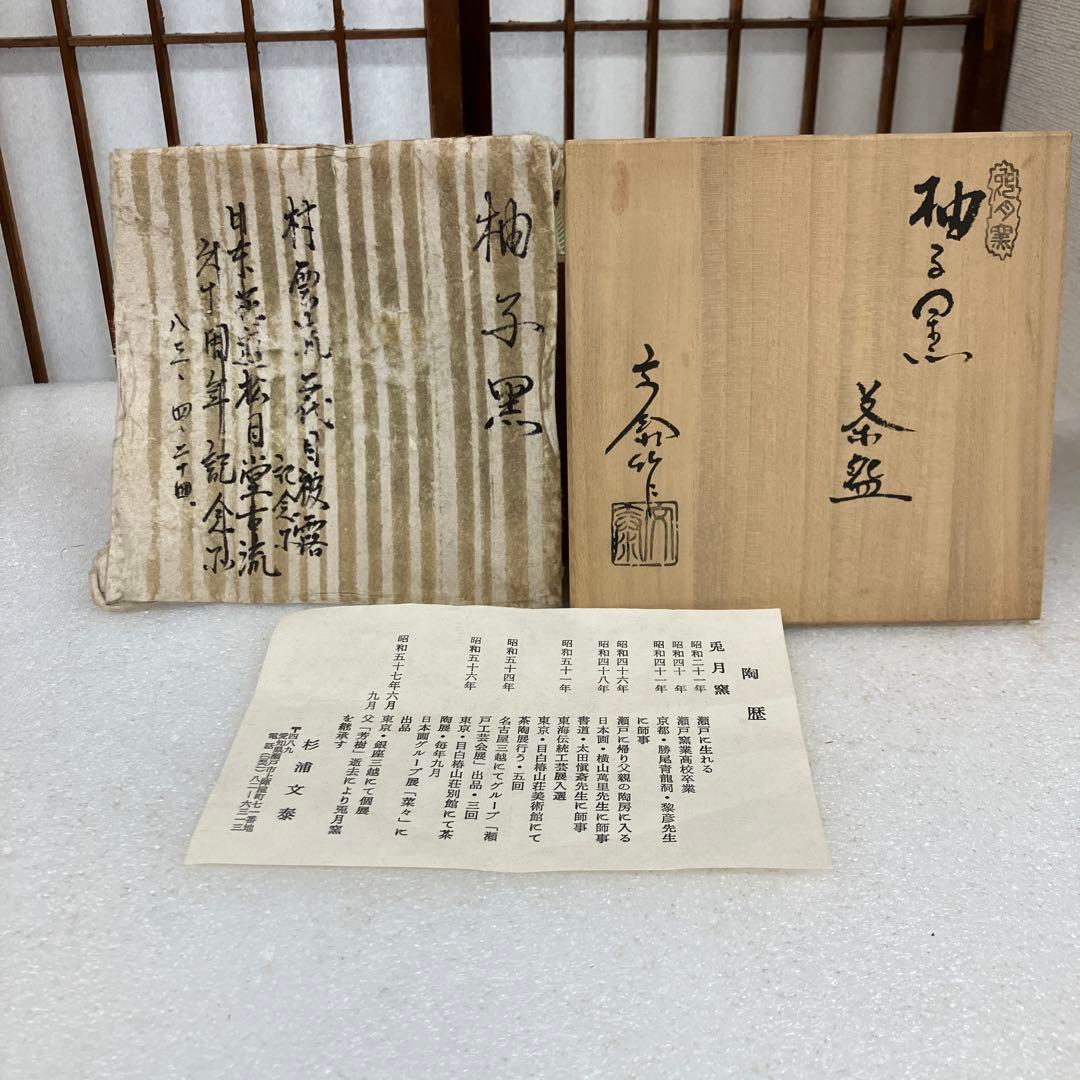 柚子黒
村雲流二代目披露
記念
日本茶道松月堂古流
六十周年記念
八三、四、二十四、
兎月窯
柚子黒
茶盌
文泰作
文泰
陶歴
兎月窯
昭和二十一年 瀬戸に生れる
昭和四十年 瀬戸窯業高校卒業
昭和四十一年 京都・勝尾青龍洞・黎彦先生
に師事
昭和四十六年 瀬戸に帰り父親の陶房に入る
昭和四十八年 日本画・横山萬里先生に師事
書道・太田愼斎先生に師事
昭和五十一年 東海伝統工芸展入選
東京・目白椿山荘美術館にて
茶陶展行う・五回
昭和五十四年 名古屋三越にてグループ「瀬
戸工芸会展」出品・三回
昭和五十六年 東京・目白椿山荘別館にて茶
陶展・毎年九月
日本画グループ展「菜々」に
出品
昭和五十七年六月 東京・銀座三越にて個展
九月 父「芳樹」逝去により兎月窯
を継承す
杉浦文泰
〒四八九